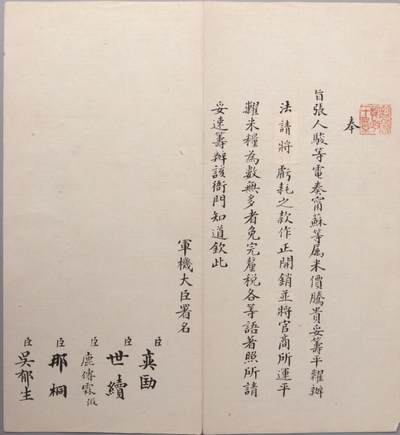 奉
旨張人駿等電奏甯蘇等屬米價騰貴妥籌平糶辦
法請將虧耗之款作正開銷並將官商所運平
糶米糧為數無多者免完釐稅各等語著照所請
妥速籌辦該衙門知道欽此
軍機大臣署名
臣奕劻
臣世續
臣鹿傳霖假
臣那桐
臣吳郁生